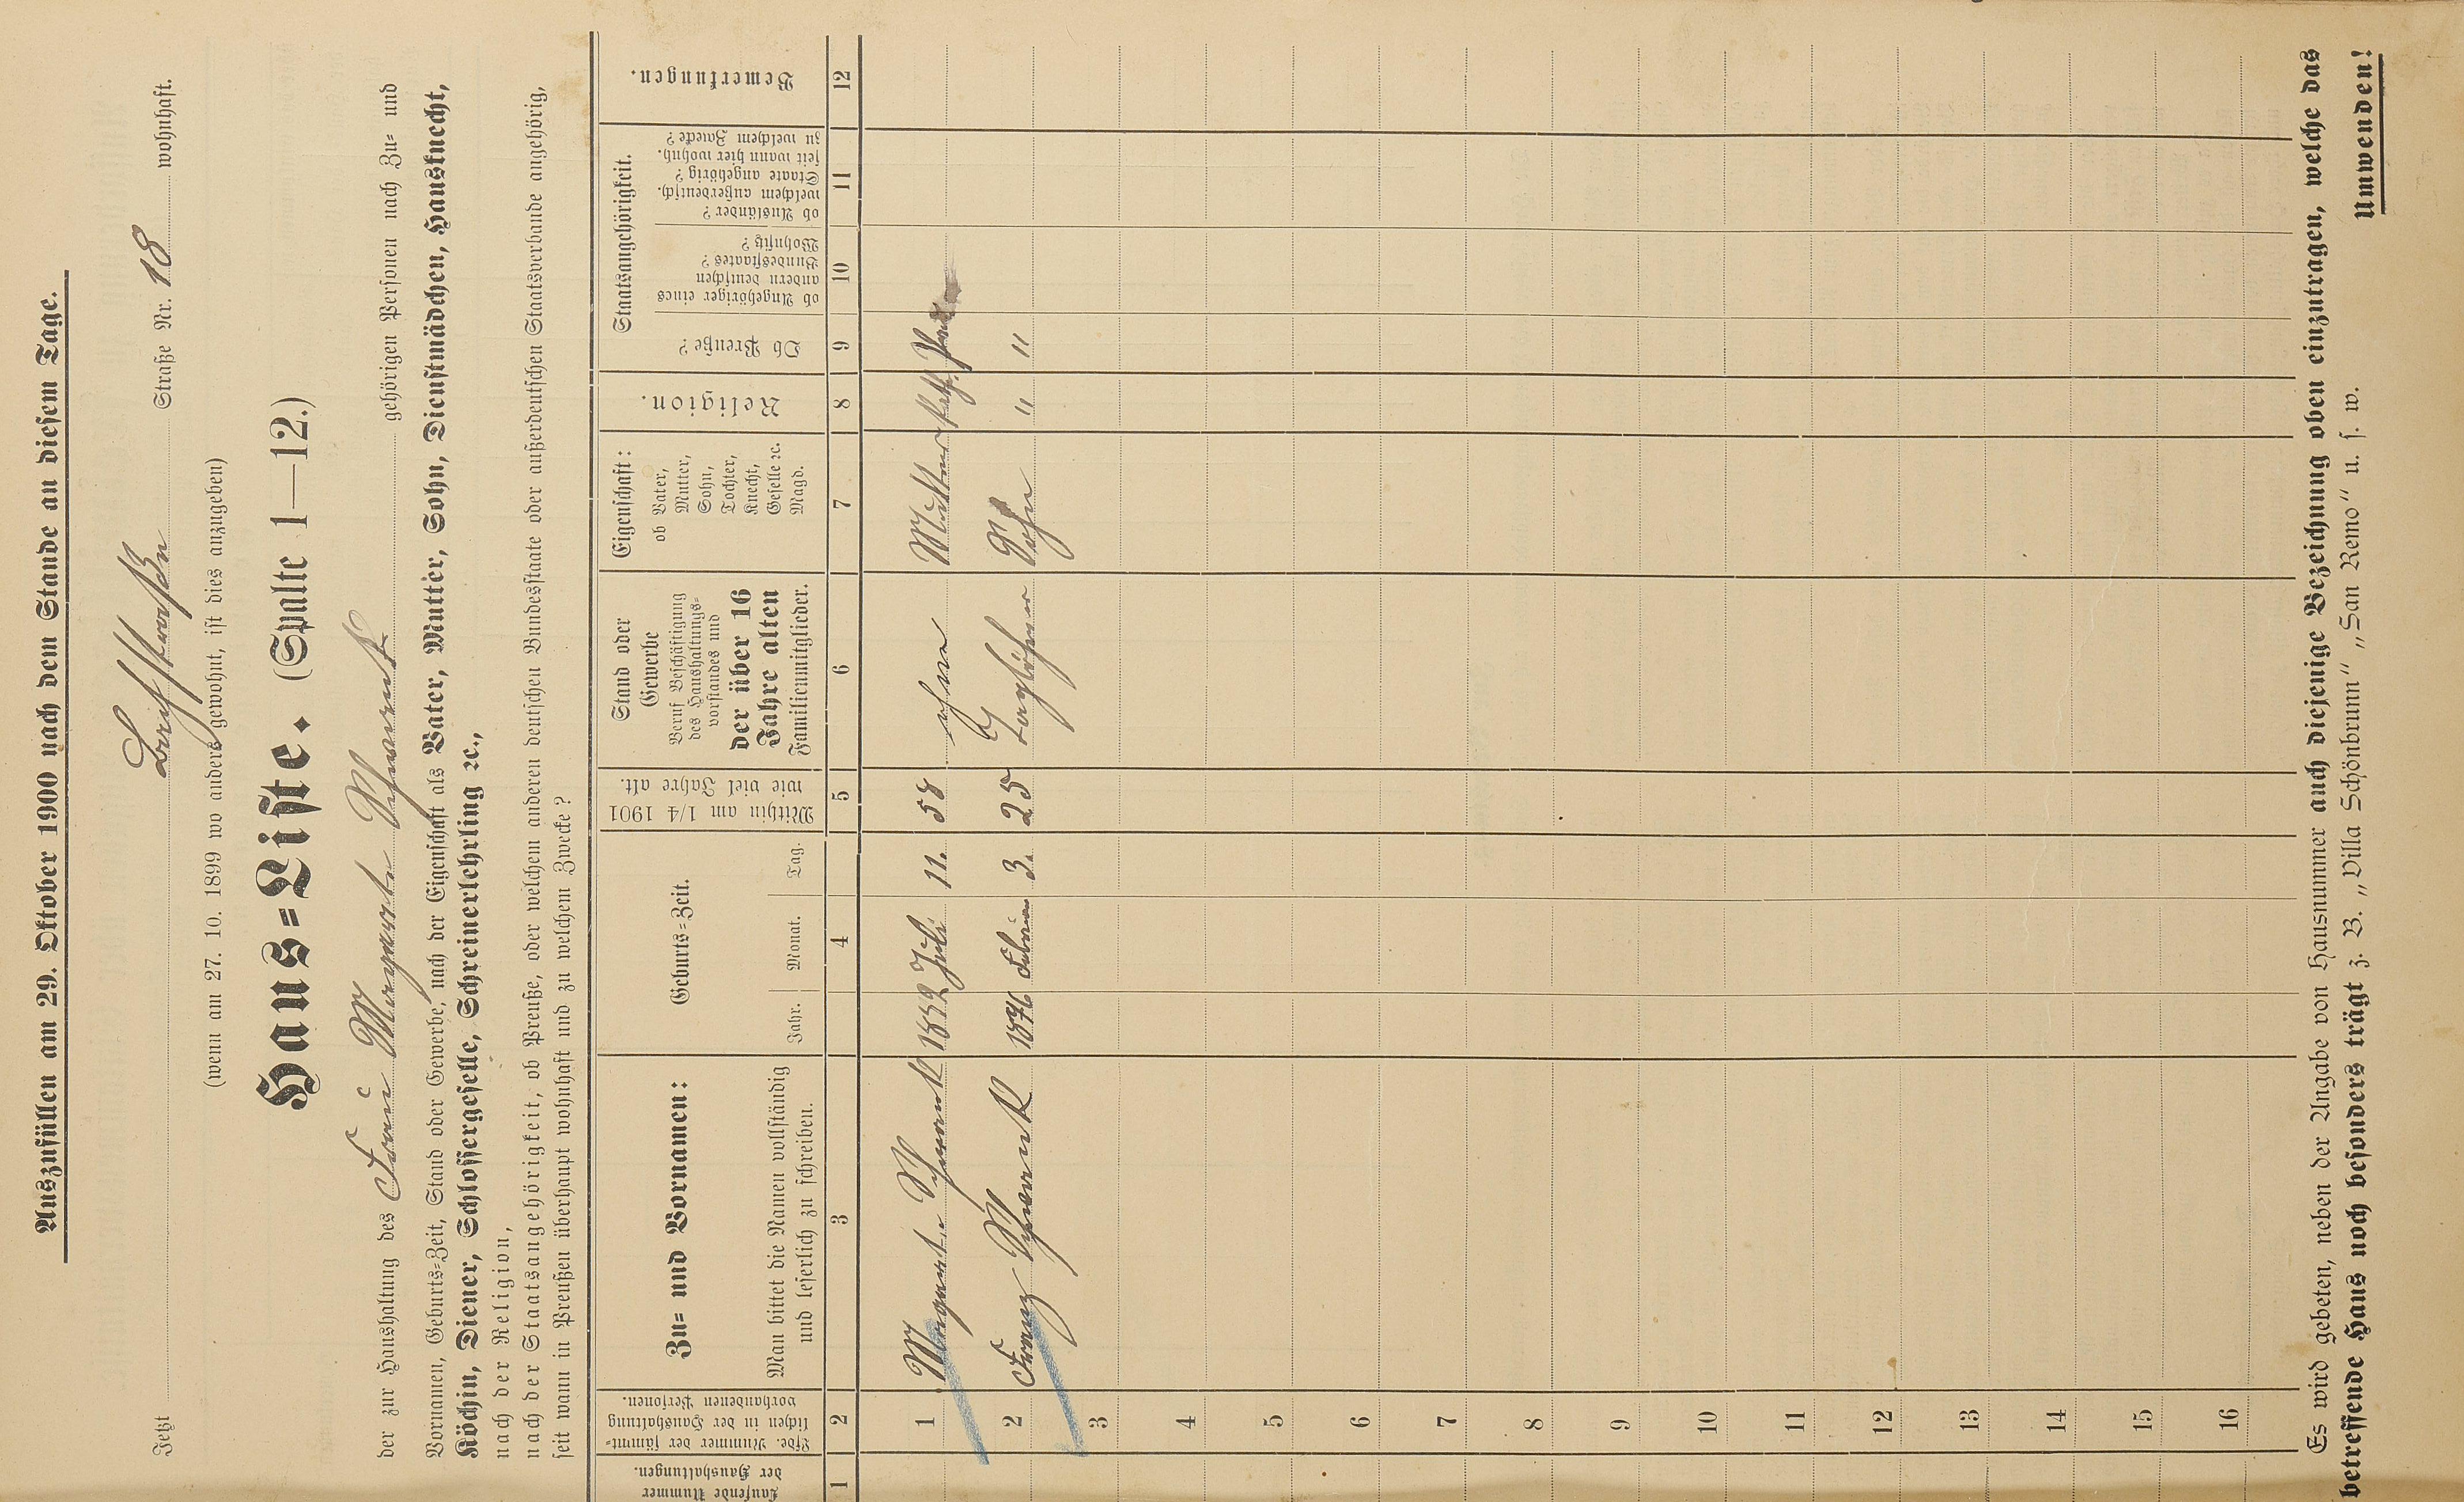 Auszufüllen am 29. Oktober 1900 nach dem Stande an diesem Tage.
Jetzt Bachstraßen Straße Nr. 18 wohnhaft.
(wenn am 27. 10. 1899 wo anders gewohnt, ist dies anzugeben)
Haus=Liste. (Spalte 1—12.)
der zur Haushaltung des Frau Margarete Schwank gehörigen Personen nach Zu= und
Vornamen, Geburts=Zeit, Stand oder Gewerbe, nach der Eigenschaft als Vater, Mutter, Sohn, Dienstmädchen, Hausknecht,
Köchin, Diener, Schlossergeselle, Schreinerlehrling ꝛc.,
nach der Religion,
nach der Staatsangehörigkeit, ob Preuße, oder welchem anderen deutschen Bundesstaate oder außerdeutschen Staatsverbande angehörig,
seit wann in Preußen überhaupt wohnhaft und zu welchem Zwecke?
Laufende Nummer
der Haushaltungen.
Lfde. Nummer der sämmt=
lichen in der Haushaltung
vorhandenen Personen.
Zu= und Vornamen:
Man bittet die Namen vollständig
und leserlich zu schreiben.
Geburts=Zeit.
Jahr. Monat. Tag.
Mithin am 1/4 1901
wie viel Jahre alt.
Stand oder
Gewerbe
Beruf Beschäftigung
des Haushaltungs=
vorstandes und
der über 16
Jahre alten
Familienmitglieder.
Eigenschaft:
ob Vater,
Mutter,
Sohn,
Tochter,
Knecht,
Geselle ꝛc.
Magd.
Religion.
Staatsangehörigkeit.
Ob Preuße?
ob Angehöriger eines
andern deutschen
Bundesstaates?
Wohnsitz?
ob Ausländer?
welchem außerdeutsch.
Staate angehörig?
seit wann hier wohnh.
zu welchem Zwecke?
Bemerkungen.
1 2 3 4 5 6 7 8 9 10 11 12
1 Margarete Schwank 1842 Juli 11. 58 ohne Mutter kath.
2 Franz Schwank 1876 Februar 3. 25 Taglöhner Sohn " "
3
4
5
6
7
8
9
10
11
12
13
14
15
16
Es wird gebeten, neben der Angabe von Hausnummer auch diejenige Bezeichnung oben einzutragen, welche das
betreffende Haus noch besonders trägt z. B. „Villa Schönbrunn" „San Remo" u. s. w.
Umwenden!